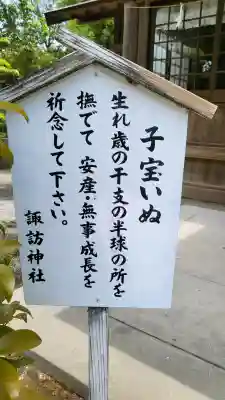 子宝いぬ
生れ歳の干支の半球の所を
撫でて 安産・無事成長を
祈念して下さい。
諏訪神社